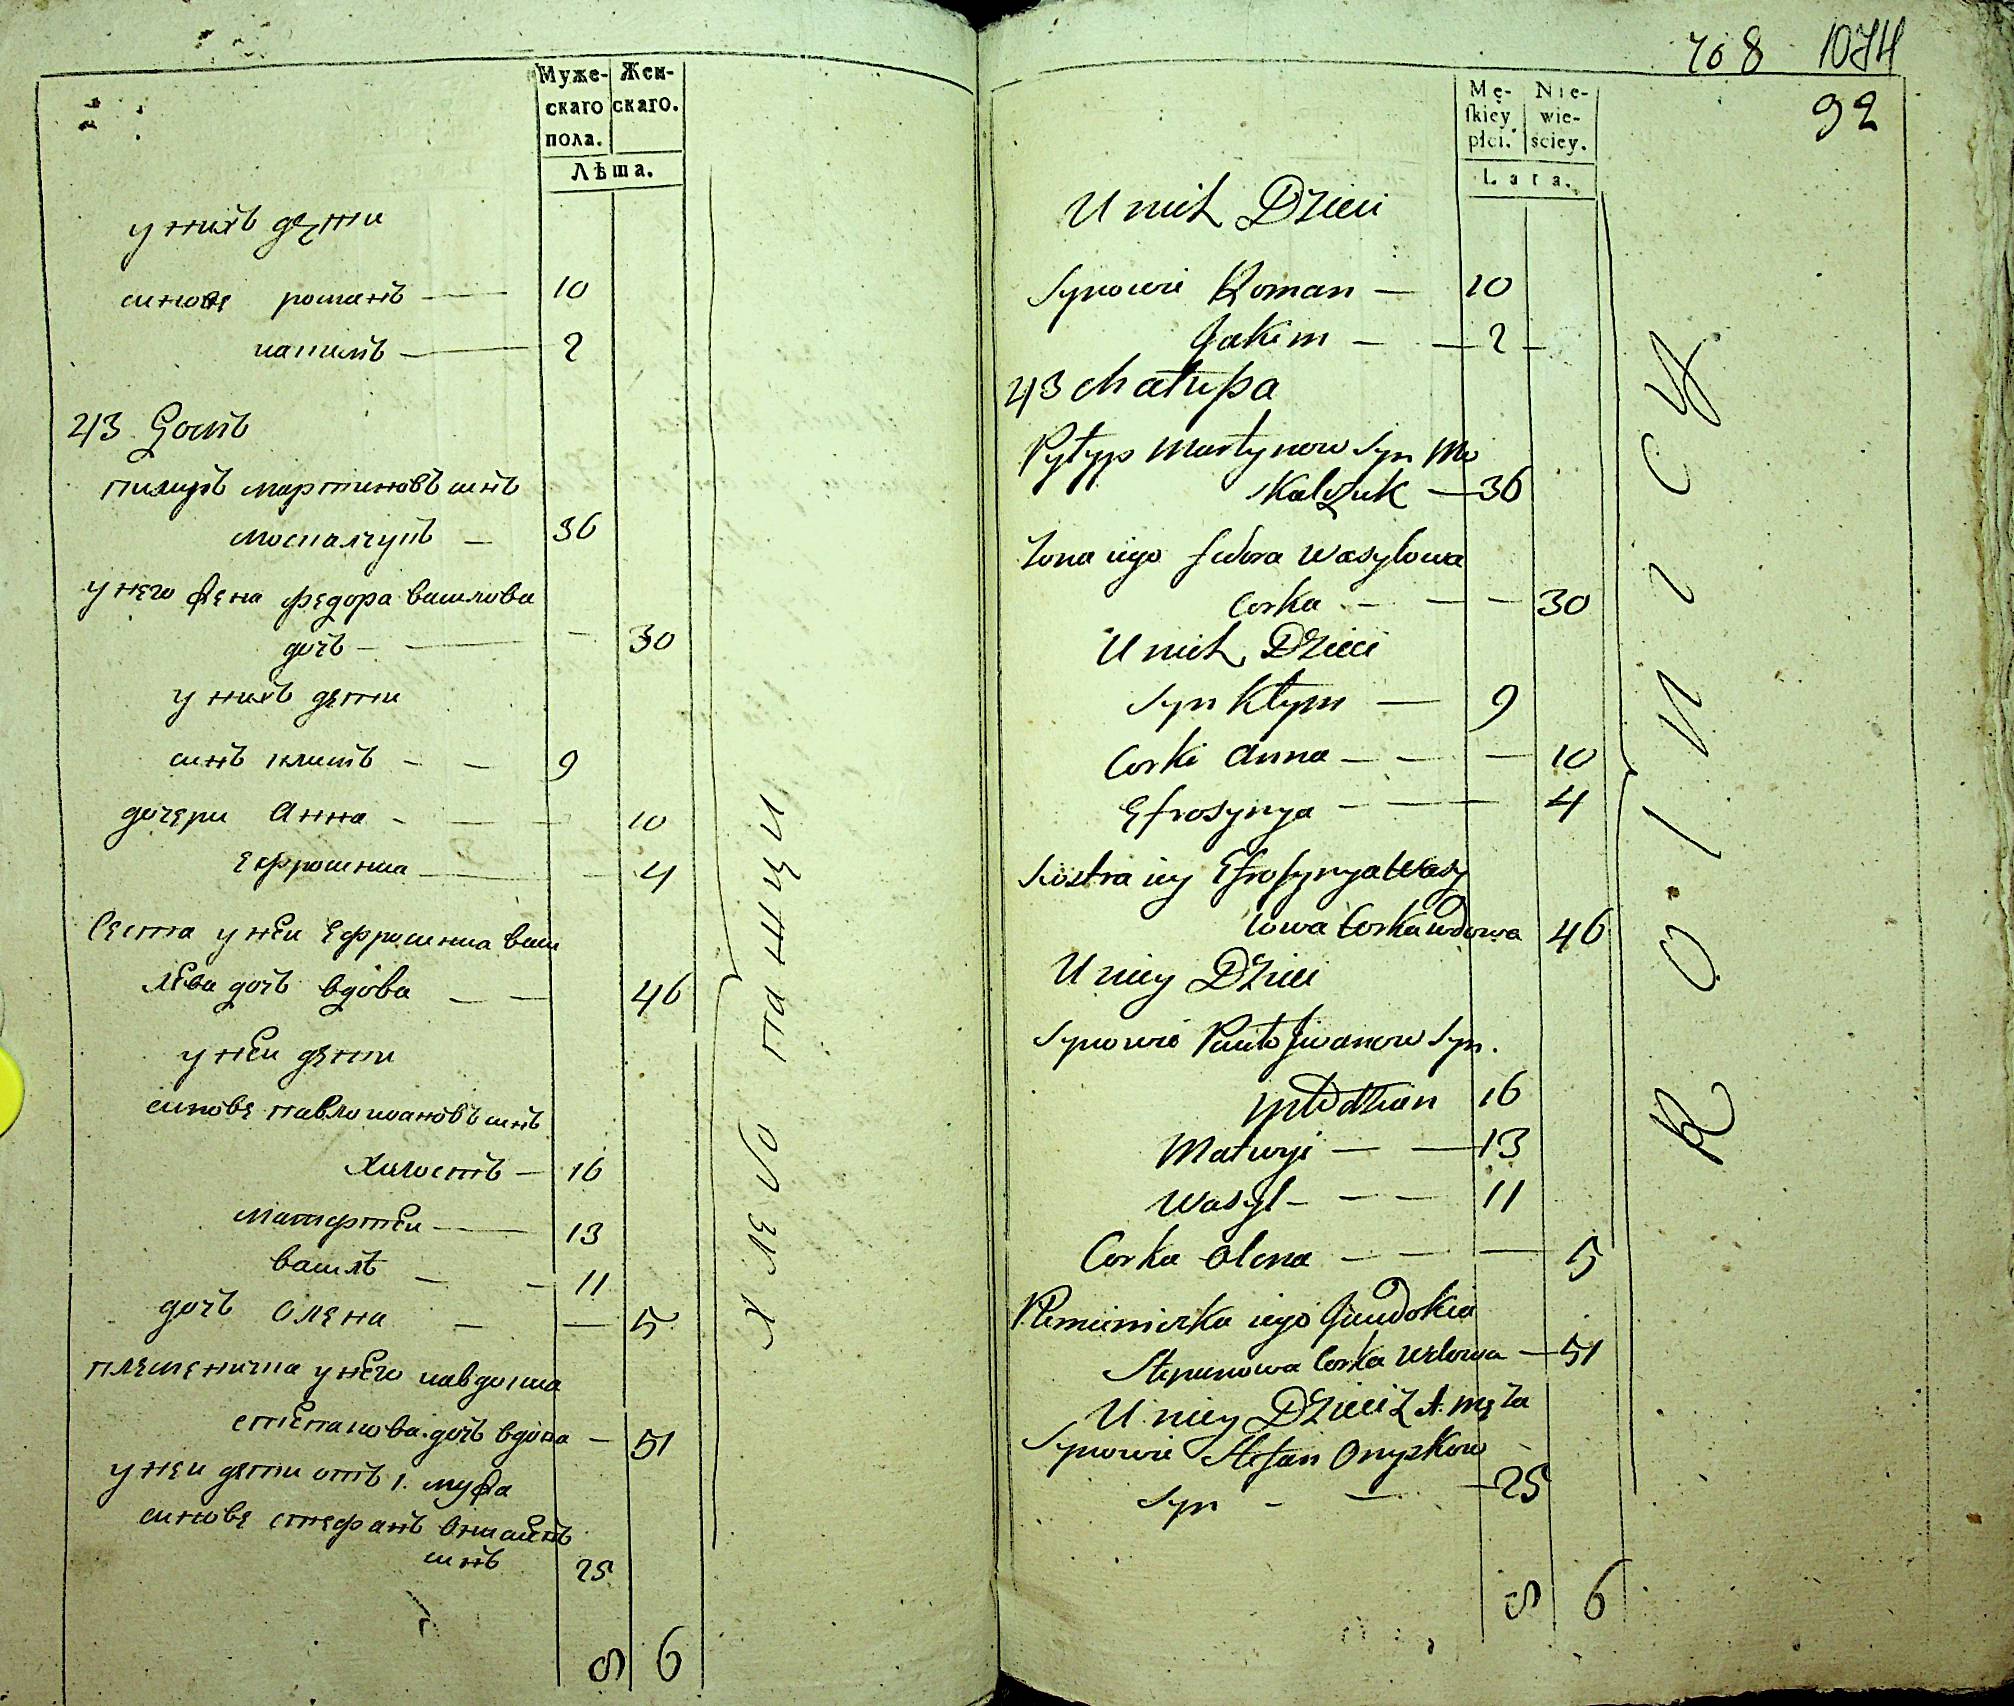 Муже-
скаго
пола.
Жен-
скаго.
Лѣта.
у нихъ дѣти
синове романъ — 10
иакимъ — 2
43 Домъ
пилипъ мартиновъ синъ
москалчукъ — 36
у него жена федора василова
дочъ — 30
у нихъ дети
синъ климъ — 9
дочери Анна — 10
Ефросиниа — 4
Сестра у неи Ефросиниа васи
лева дочъ вдова — 46
у неи дети
синове павло ивановъ синъ
16
Матфтеи — 13
василь — 11
дочъ Олена — 5
племеница у него иавдокиа
степанова дочъ вдова — 51
у неи дети отъ 1. мужа
синове стефанъ
синъ 25
8 6
хлебопашци
708 1074
92
Mę-
skiey
płci.
Nie-
wie-
sciey.
Lata.
U nich Dzieci
Synowie Roman — 10
Jakim — 2
43 Chałupa
Pyłyp Martynow Syn Mo
skalczuk — 36
Żona iego Fedora Wasylowa
Corka — 30
U nich Dzieci
Syn Kłym — 9
Corki Anna — 10
Efrosynya — 4
Siostra iey Efrosynya Wasy
lowa Corka wdowa 46
U niey Dzieci
Synowie Pawło Jwanow Syn.
Młodzian 16
Matwyi — 13
Wasyl — 11
Corka Olena — 5
Plemiennicka iego Jawdokia
Stepanowa Corka Wdowa — 51
U niey Dzieci z 1. męża
Synowie Stefan Onyszkow
Syn — 25
8 6
ROLNICY